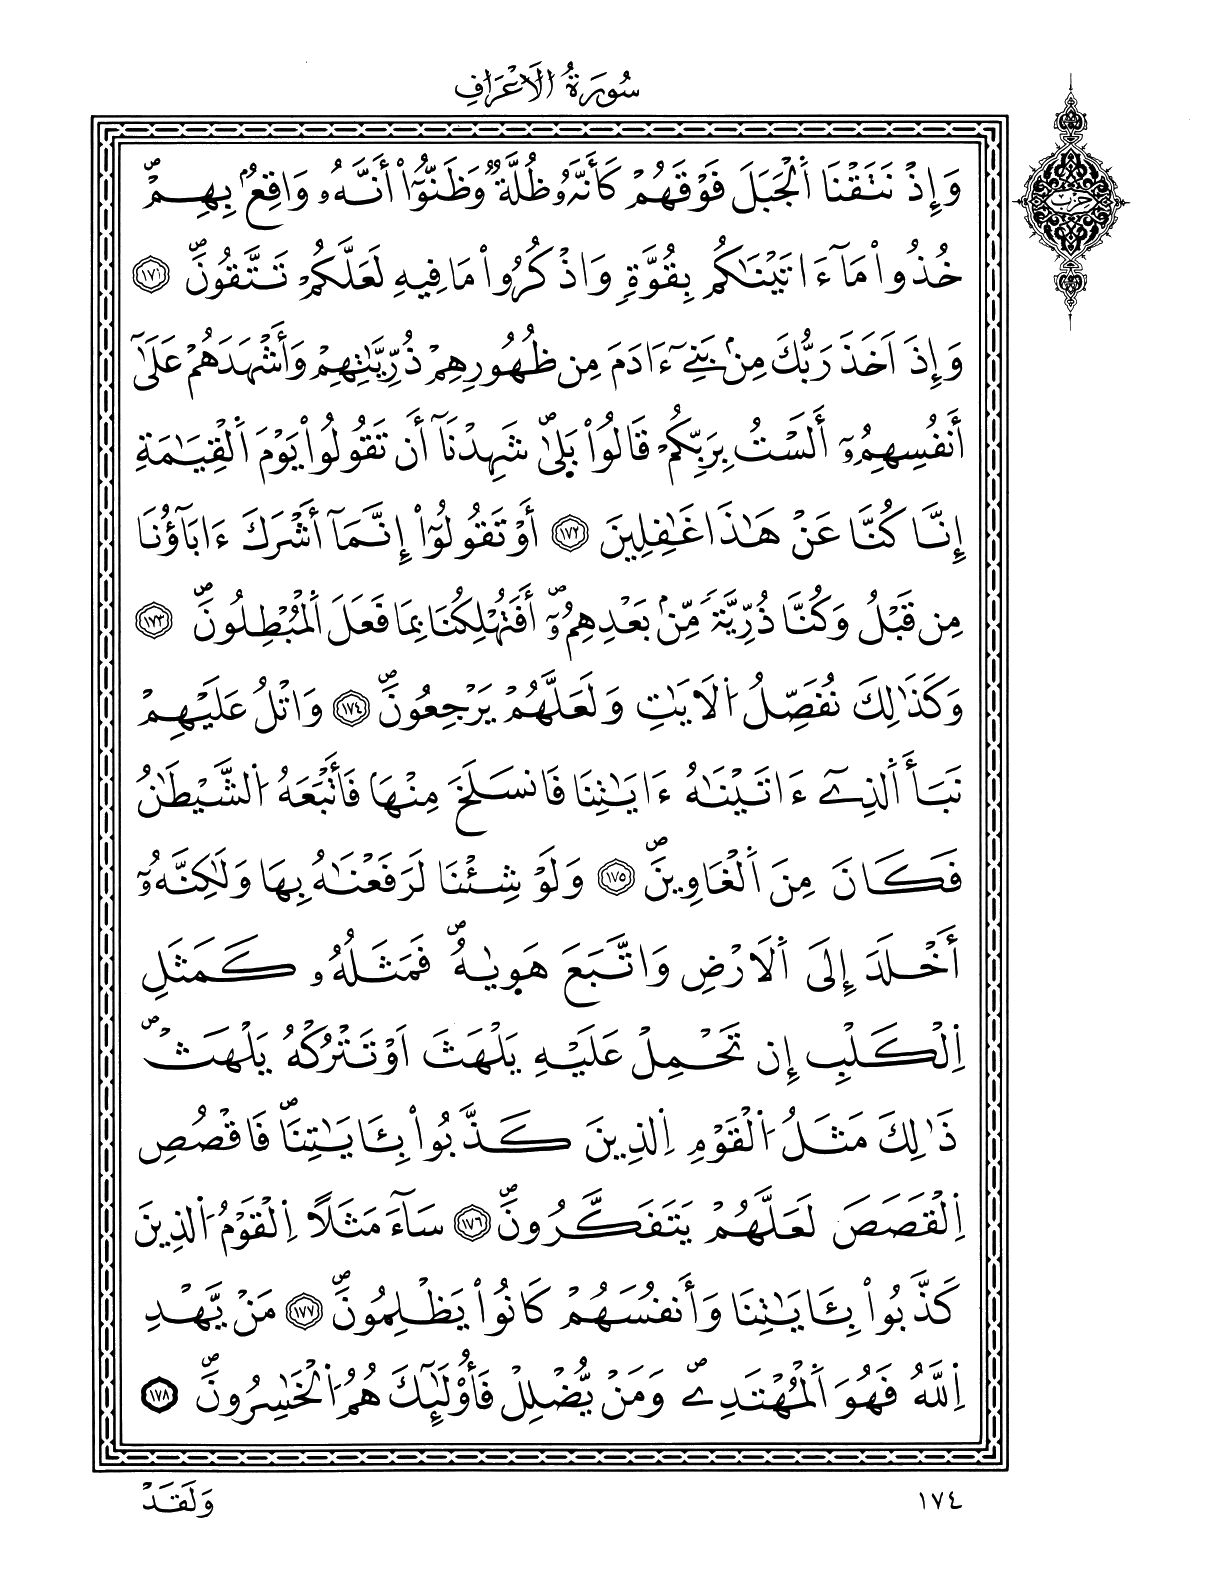 سُورَةُ الْأَعْرَافِ
حِزْب
وَإِذْ نَتَقْنَا اَ۬لْجَبَلَ فَوْقَهُمْ كَأَنَّهُۥ ظُلَّةٞ وَظَنُّوٓاْ أَنَّهُۥ وَاقِعُۢ بِهِمْۖ
خُذُواْ مَآ ءَاتَيْنَٰكُم بِقُوَّةٖ وَاذْكُرُواْ مَا فِيهِ لَعَلَّكُمْ تَتَّقُونَۖ ١٧١
وَإِذَ اَخَذَ رَبُّكَ مِنۢ بَنِےٓ ءَادَمَ مِن ظُهُورِهِمْ ذُرِّيَّٰتِهِمْ وَأَشْهَدَهُمْ عَلَىٰٓ
أَنفُسِهِمُۥٓ أَلَسْتُ بِرَبِّكُمْ قَالُواْ بَلَىٰۖ شَهِدْنَآ أَن تَقُولُواْ يَوْمَ اَ۬لْقِيَٰمَةِ
إِنَّا كُنَّا عَنْ هَٰذَا غَٰفِلِينَ ١٧٢ أَوْ تَقُولُوٓاْ إِنَّمَآ أَشْرَكَ ءَابَآؤُنَا
مِن قَبْلُ وَكُنَّا ذُرِّيَّةٗ مِّنۢ بَعْدِهِمُۥٓۖ أَفَتُهْلِكُنَا بِمَا فَعَلَ اَ۬لْمُبْطِلُونَۖ ١٧٣
وَكَذَٰلِكَ نُفَصِّلُ اُ۬لَايَٰتِ وَلَعَلَّهُمْ يَرْجِعُونَۖ ١٧٤ وَاتْلُ عَلَيْهِمْ
نَبَأَ اَ۬لذِےٓ ءَاتَيْنَٰهُ ءَايَٰتِنَا فَانسَلَخَ مِنْهَا فَأَتْبَعَهُ اُ۬لشَّيْطَٰنُ
فَكَانَ مِنَ اَ۬لْغَاوِينَۖ ١٧٥ وَلَوْ شِئْنَا لَرَفَعْنَٰهُ بِهَا وَلَٰكِنَّهُۥٓ
أَخْلَدَ إِلَى اَ۬لَارْضِ وَاتَّبَعَ هَوٜىٰهُۖ فَمَثَلُهُۥ كَمَثَلِ
اِ۬لْكَلْبِ إِن تَحْمِلْ عَلَيْهِ يَلْهَثَ اَوْ تَتْرُكْهُ يَلْهَثْۖ
ذَٰلِكَ مَثَلُ اُ۬لْقَوْمِ اِ۬لذِينَ كَذَّبُواْ بِـَٔايَٰتِنَاۖ فَاقْصُصِ
اِ۬لْقَصَصَ لَعَلَّهُمْ يَتَفَكَّرُونَۖ ١٧٦ سَآءَ مَثَلًا اِ۬لْقَوْمُ اُ۬لذِينَ
كَذَّبُواْ بِـَٔايَٰتِنَا وَأَنفُسَهُمْ كَانُواْ يَظْلِمُونَۖ ١٧٧ مَنْ يَّهْدِ
اِ۬للَّهُ فَهُوَ اَ۬لْمُهْتَدِےۖ وَمَنْ يُّضْلِلْ فَأُوْلَٰٓئِكَ هُمُ اُ۬لْخَٰسِرُونَۖ ١٧٨
١٧٤
وَلَقَدْ